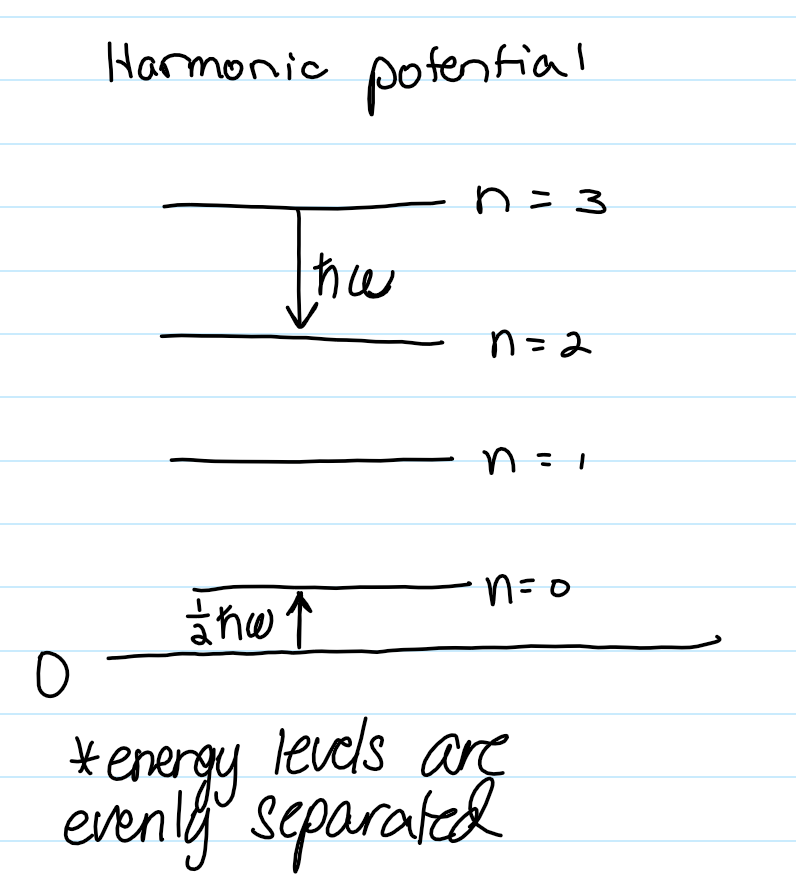 Harmonic potential
n = 3
ħω
n = 2
n = 1
n = 0
½ħω
0
*energy levels are
evenly separated